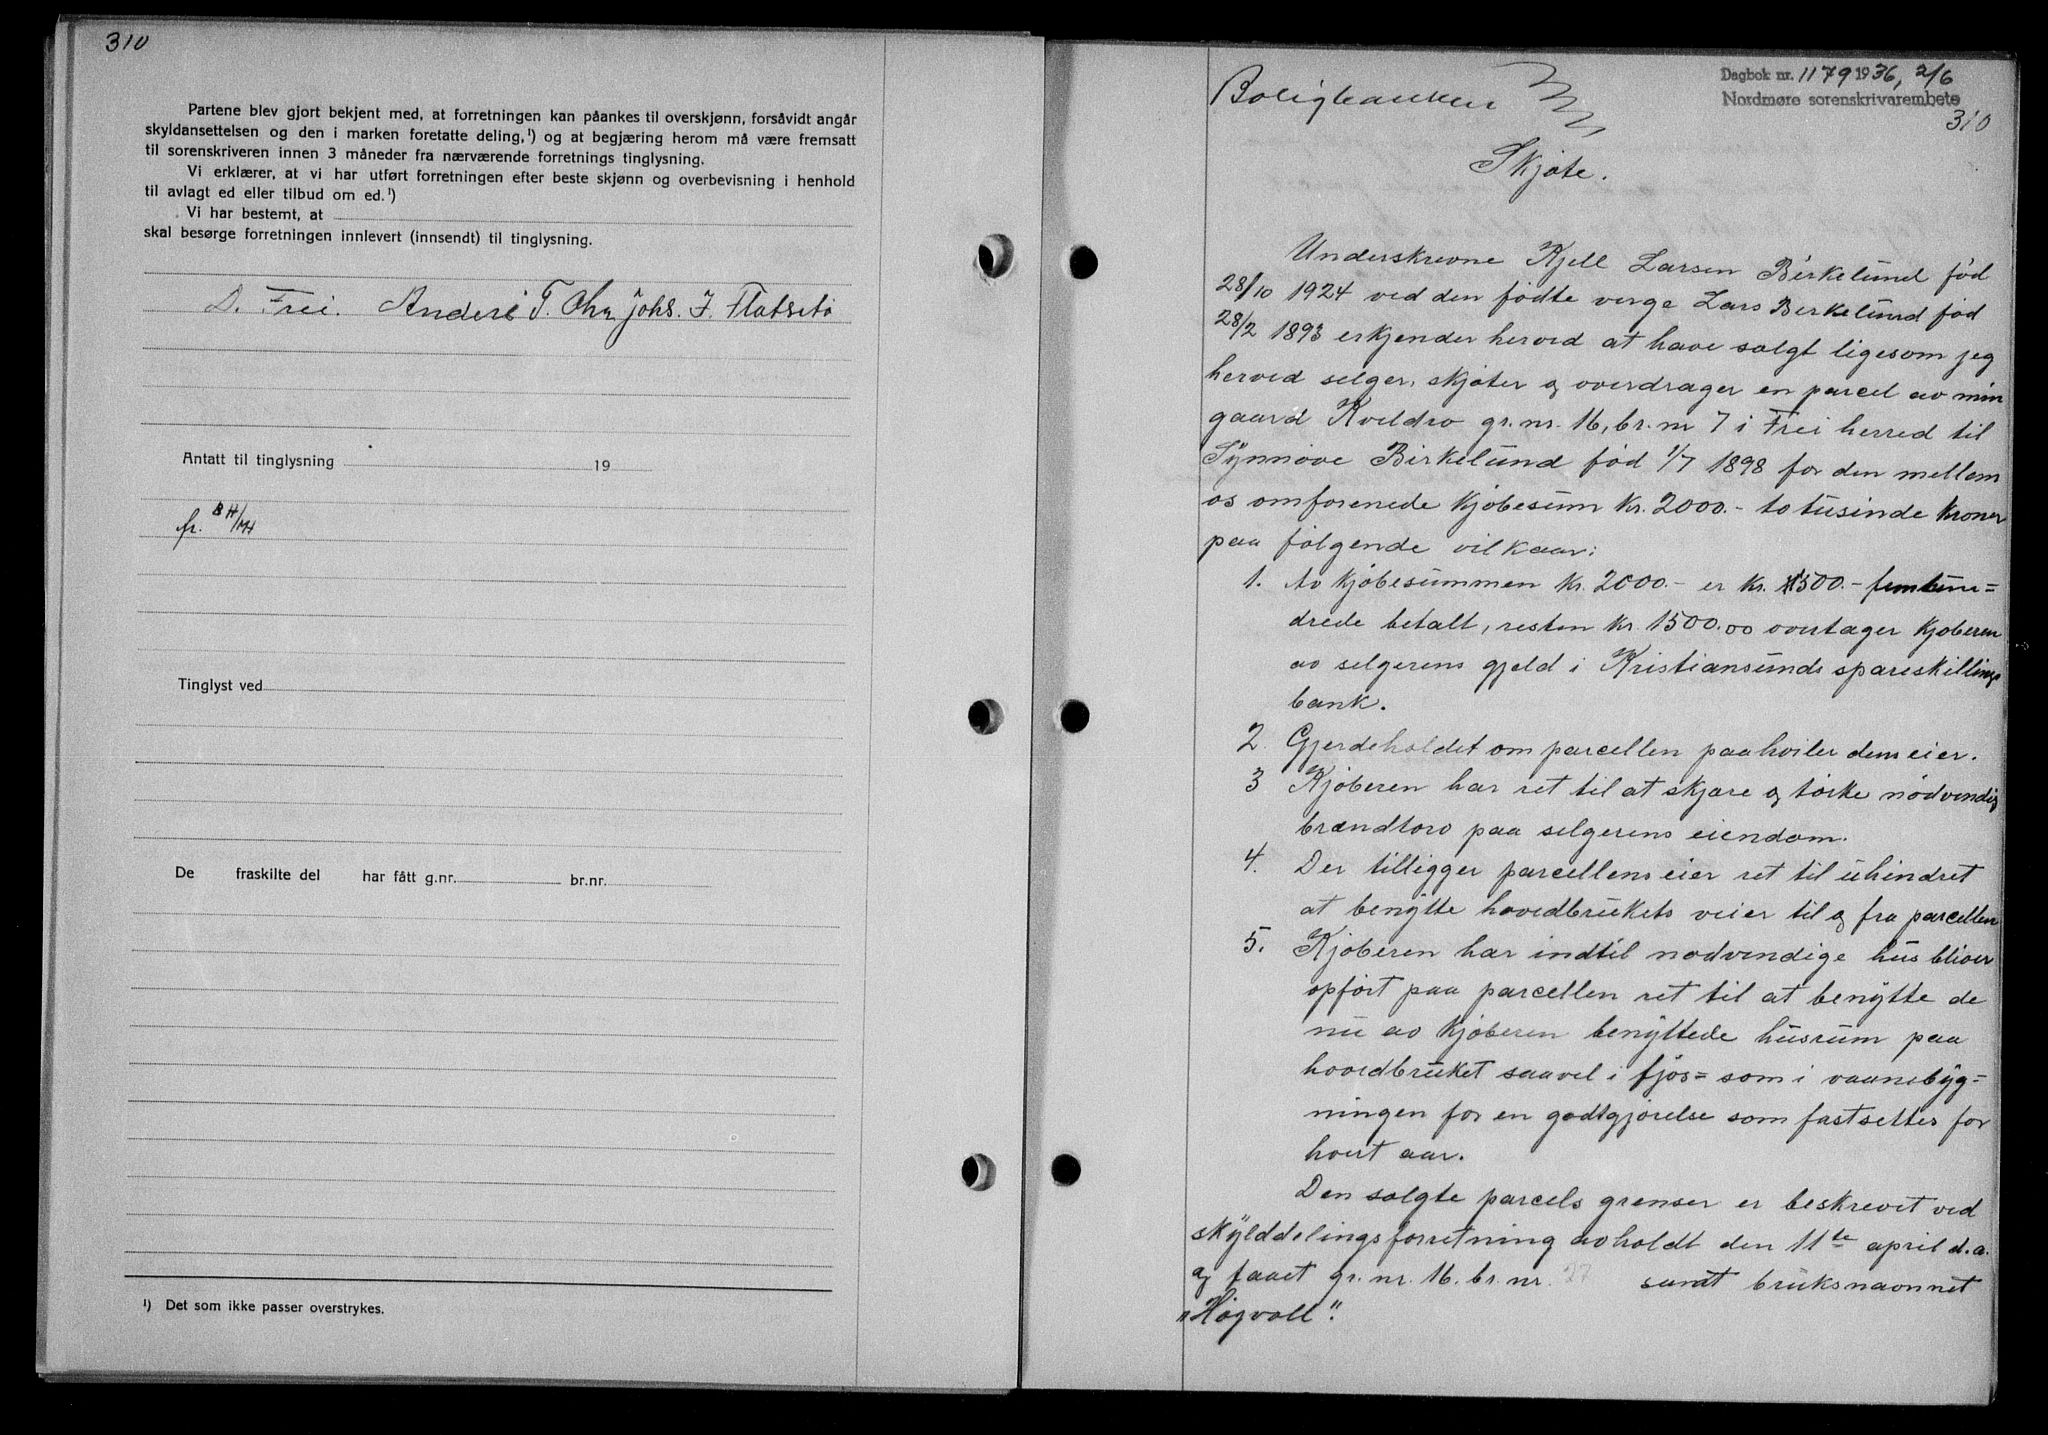 310
Partene blev gjort bekjent med, at forretningen kan påankes til overskjønn, forsåvidt angår
skyldansettelsen og den i marken foretatte deling,¹) og at begjæring herom må være fremsatt
til sorenskriveren innen 3 måneder fra nærværende forretnings tinglysning.
Vi erklærer, at vi har utført forretningen efter beste skjønn og overbevisning i henhold
til avlagt ed eller tilbud om ed.¹)
Vi har bestemt, at
skal besørge forretningen innlevert (innsendt) til tinglysning.
D. Frei. Johs. J. Flatseth
Antatt til tinglysning 19
fr.
Tinglyst ved
De fraskilte del har fått g.nr. br.nr.
¹) Det som ikke passer overstrykes.
Boligbanken
Dagbok nr. 1179 1936, 2/6
Nordmøre sorenskrivarembete
310
Skjøte.
Underskrevne Kjell Larsen Birkelund fød
28/10 1924 ved den fødte verge Lars Birkelund fød
28/2 1893 erkjender herved at have solgt ligesom jeg
herved selger, skjøter og overdrager en parcel av min
gaard Kveldro gr. nr. 16, br. nr 7 i Frei herred til
Synnøve Birkelund fød 1/7 1898 for den mellem
os omforenede kjøbesum kr. 2000.- to tusinde kroner
paa følgende vilkaar:
1. Av kjøbesummen kr. 2000.- er kr. 500.- femhun=
drede betalt, resten kr. 1500.00 overtager kjøberen
av selgerens gjeld i Kristiansunds spareskillings
bank.
2. Gjerdeholdet om parcellen paahviler dens eier.
3 Kjøberen har ret til at skjære og tørke nødvendig
brændtorv paa selgerens eiendom.
4. Der tilligger parcellens eier ret til uhindret
at benytte hovedbrukets veier til og fra parcellen
5. Kjøberen har indtil nødvendige hus bliver
opført paa parcellen ret til at benytte de
nu av kjøberen benyttede husrum paa
hovedbruket saavel i fjøs= som i vaanebyg=
ningen for en godtgjørelse som fastsettes for
hvert aar.
Den solgte parcels grenser er beskrevet ved
skylddelingsforretning avholdt den 11te april d.a.
og faaet gr. nr. 16. br. nr. 27 samt bruksnavnet
"Høgvoll".